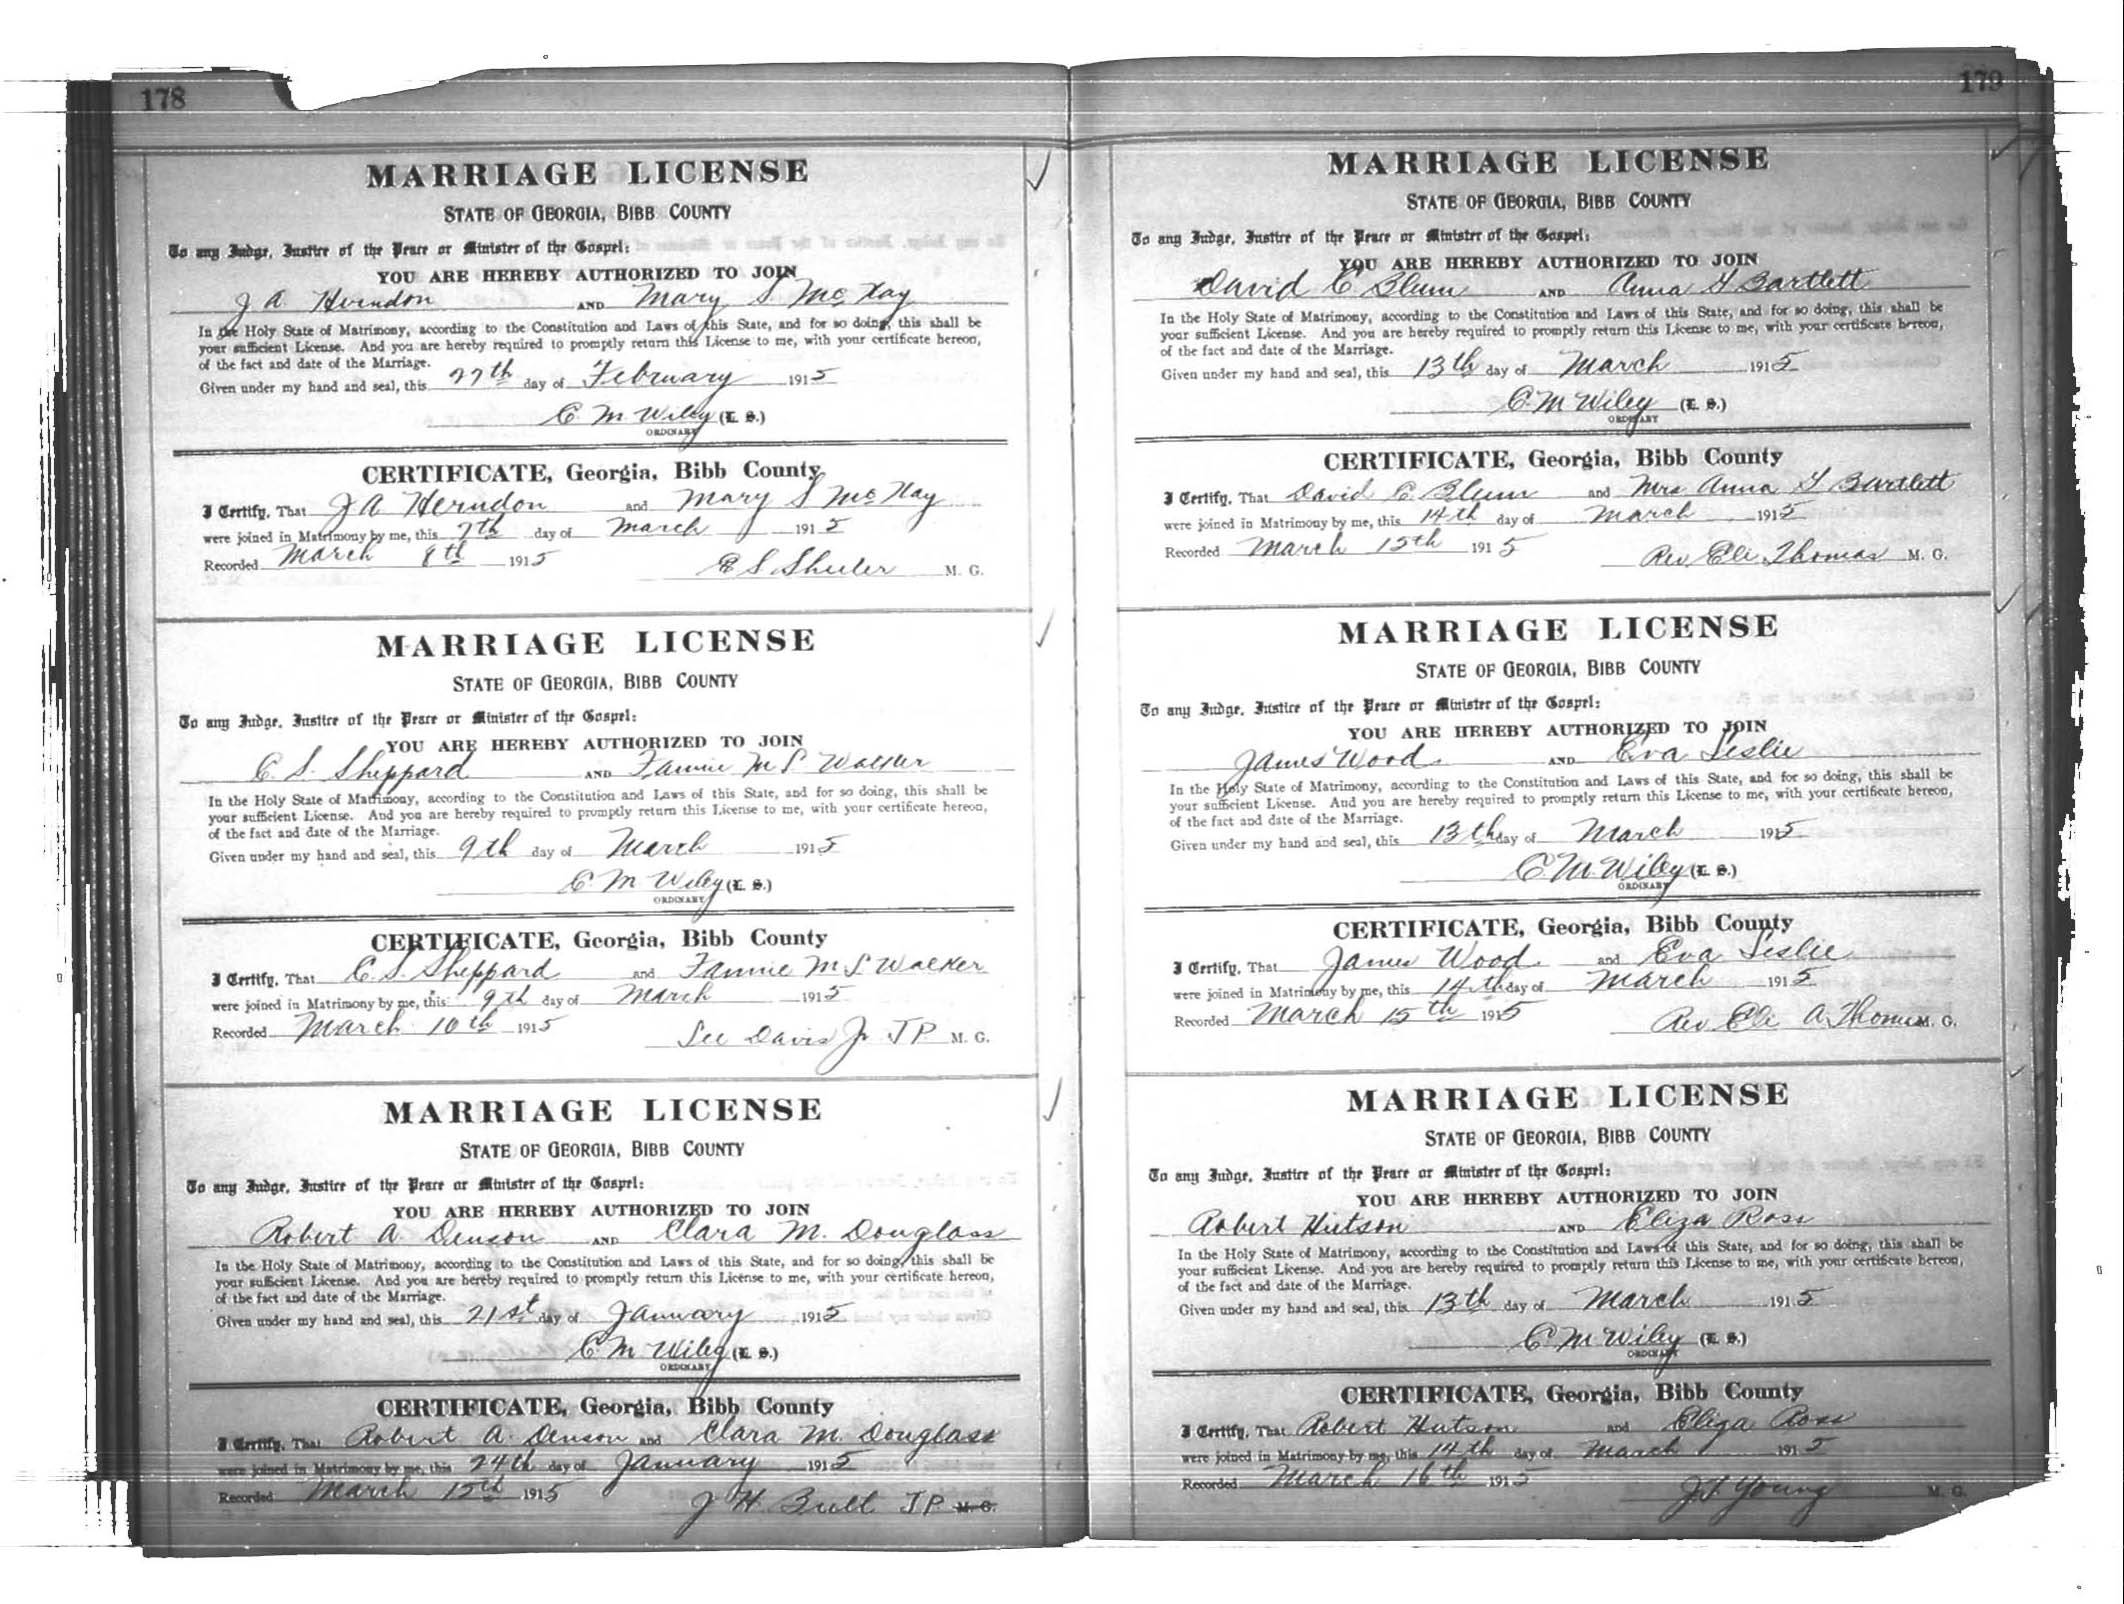 178
MARRIAGE LICENSE
STATE OF GEORGIA, BIBB COUNTY
To any Judge, Justice of the Peace or Minister of the Gospel:
YOU ARE HEREBY AUTHORIZED TO JOIN
J A Herndon AND Mary S. McKay
In the Holy State of Matrimony, according to the Constitution and Laws of this State, and for so doing, this shall be
your sufficient License. And you are hereby required to promptly return this License to me, with your certificate hereon,
of the fact and date of the Marriage.
Given under my hand and seal, this 27th day of February 1915
C. M. Wiley (L. S.)
ORDINARY
CERTIFICATE, Georgia, Bibb County
I Certify, That J A Herndon and Mary S McKay
were joined in Matrimony by me, this 7th day of March 1915
Recorded March 8th 1915
E S. Sheeler M. G.
MARRIAGE LICENSE
STATE OF GEORGIA, BIBB COUNTY
To any Judge, Justice of the Peace or Minister of the Gospel:
YOU ARE HEREBY AUTHORIZED TO JOIN
C. S. Sheppard AND Fannie M S Walker
In the Holy State of Matrimony, according to the Constitution and Laws of this State, and for so doing, this shall be
your sufficient License. And you are hereby required to promptly return this License to me, with your certificate hereon,
of the fact and date of the Marriage.
Given under my hand and seal, this 9th day of March 1915
C. M Wiley (L. S.)
ORDINARY
CERTIFICATE, Georgia, Bibb County
I Certify, That C. S. Sheppard and Fannie M S Walker
were joined in Matrimony by me, this 9th day of March 1915
Recorded March 10th 1915
Lee Davis Jr J P M. G.
MARRIAGE LICENSE
STATE OF GEORGIA, BIBB COUNTY
To any Judge, Justice of the Peace or Minister of the Gospel:
YOU ARE HEREBY AUTHORIZED TO JOIN
Robert A Denson AND Clara M. Douglass
In the Holy State of Matrimony, according to the Constitution and Laws of this State, and for so doing, this shall be
your sufficient License. And you are hereby required to promptly return this License to me, with your certificate hereon,
of the fact and date of the Marriage.
Given under my hand and seal, this 21st day of January 1915
C. M Wiley (L. S.)
ORDINARY
CERTIFICATE, Georgia, Bibb County
I Certify, That Robert A. Denson and Clara M. Douglass
were joined in Matrimony by me, this 24th day of January 1915
Recorded March 15th 1915
J H Bull J P. M. G.
179
MARRIAGE LICENSE
STATE OF GEORGIA, BIBB COUNTY
To any Judge, Justice of the Peace or Minister of the Gospel:
YOU ARE HEREBY AUTHORIZED TO JOIN
David C Blum AND Anna G Bartlett
In the Holy State of Matrimony, according to the Constitution and Laws of this State, and for so doing, this shall be
your sufficient License. And you are hereby required to promptly return this License to me, with your certificate hereon,
of the fact and date of the Marriage.
Given under my hand and seal, this 13th day of March 1915
C. M Wiley (L. S.)
ORDINARY
CERTIFICATE, Georgia, Bibb County
I Certify, That David C Blum and Mrs Anna G Bartlett
were joined in Matrimony by me, this 14th day of March 1915
Recorded March 15th 1915
Rev. Eli Thomas M. G.
MARRIAGE LICENSE
STATE OF GEORGIA, BIBB COUNTY
To any Judge, Justice of the Peace or Minister of the Gospel:
YOU ARE HEREBY AUTHORIZED TO JOIN
James Wood AND Eva Leslie
In the Holy State of Matrimony, according to the Constitution and Laws of this State, and for so doing, this shall be
your sufficient License. And you are hereby required to promptly return this License to me, with your certificate hereon,
of the fact and date of the Marriage.
Given under my hand and seal, this 13th day of March 1915
C. M. Wiley (L. S.)
ORDINARY
CERTIFICATE, Georgia, Bibb County
I Certify, That James Wood and Eva Leslie
were joined in Matrimony by me, this 14th day of March 1915
Recorded March 15th 1915
Rev Eli A. Thomas M. G.
MARRIAGE LICENSE
STATE OF GEORGIA, BIBB COUNTY
To any Judge, Justice of the Peace or Minister of the Gospel:
YOU ARE HEREBY AUTHORIZED TO JOIN
Robert Hutson AND Eliza Ross
In the Holy State of Matrimony, according to the Constitution and Laws of this State, and for so doing, this shall be
your sufficient License. And you are hereby required to promptly return this License to me, with your certificate hereon,
of the fact and date of the Marriage.
Given under my hand and seal, this 13th day of March 1915
C M Wiley (L. S.)
ORDINARY
CERTIFICATE, Georgia, Bibb County
I Certify, That Robert Hutson and Eliza Ross
were joined in Matrimony by me, this 14th day of March 1915
Recorded March 16th 1915
J. T. Young M. G.